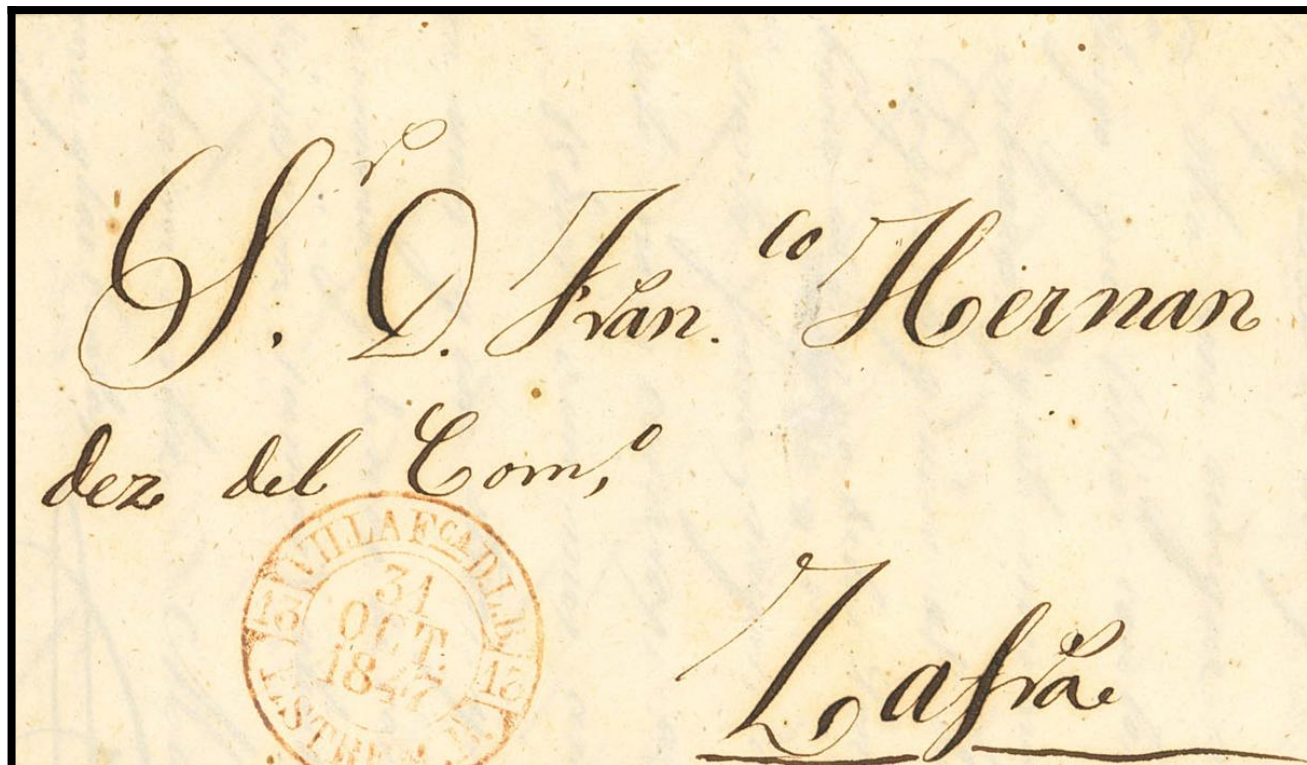 S.r D. Fran.co Hernan
dez del Com.o
VILLAFCA. DE B.
31
OCT.
1847
ESTREM.
Zafra